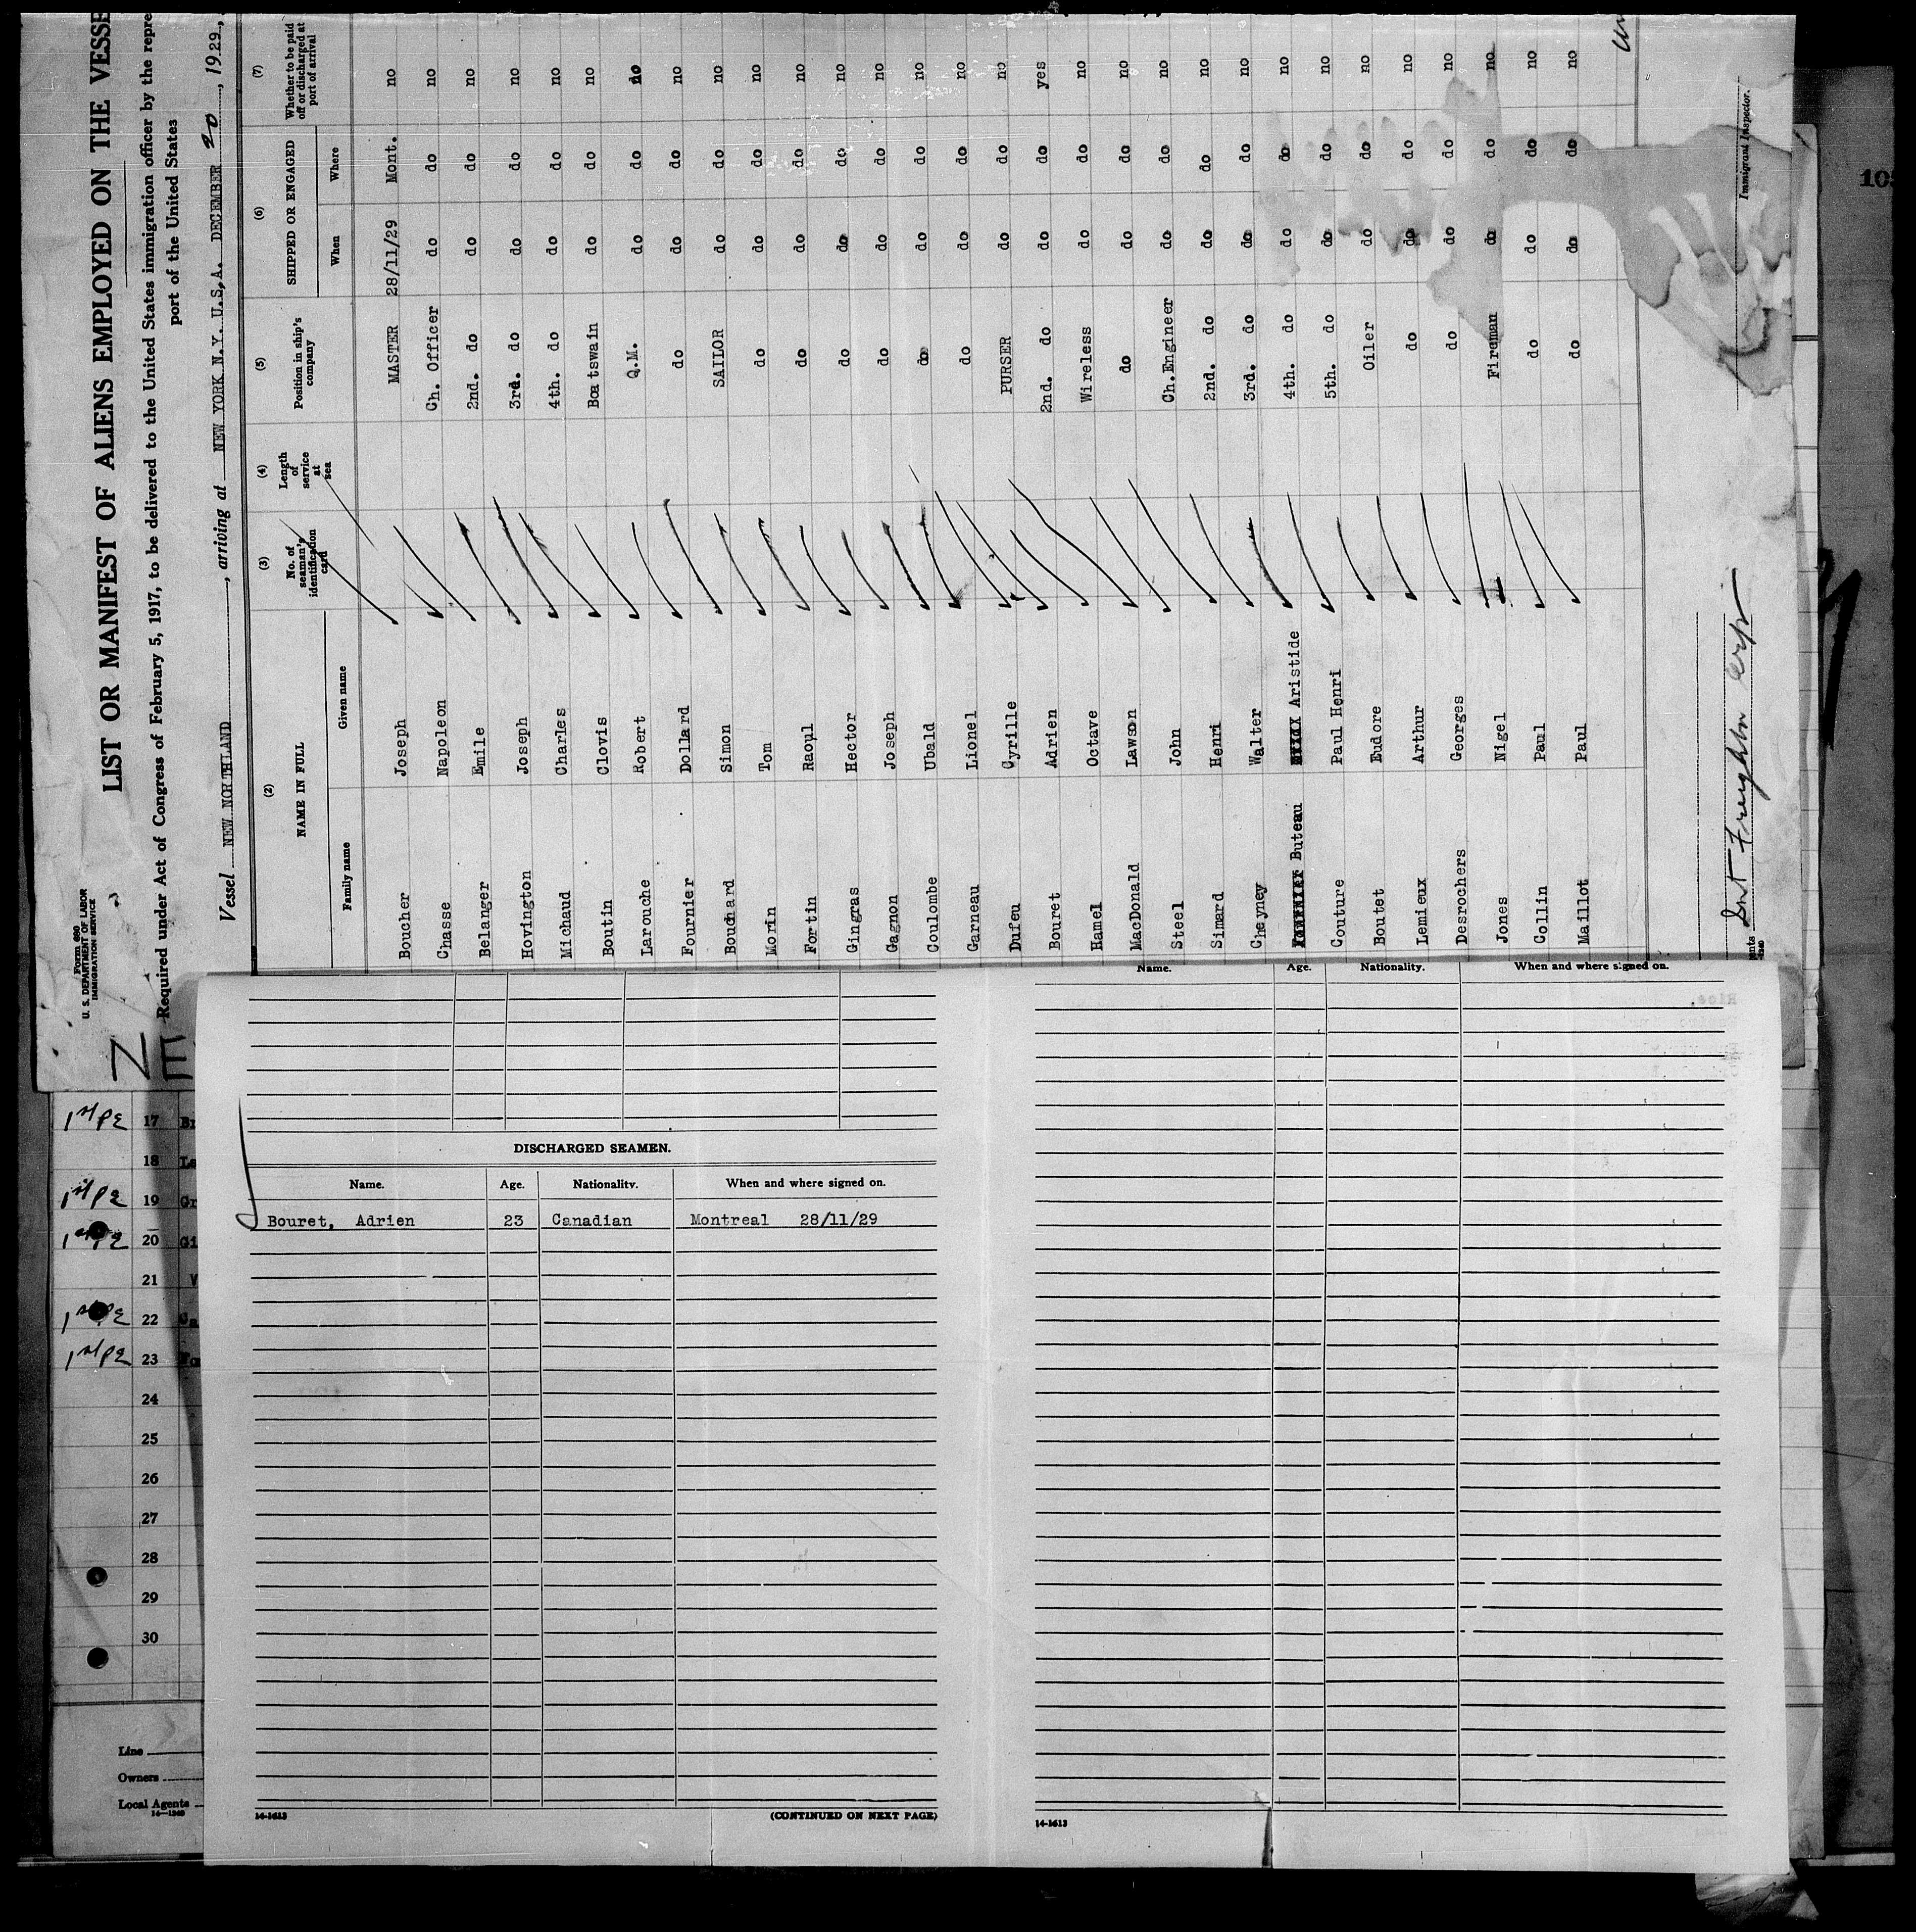 Form 689
U. S. DEPARTMENT OF LABOR
IMMIGRATION SERVICE
LIST OR MANIFEST OF ALIENS EMPLOYED ON THE VESSE
Required under Act of Congress of February 5, 1917, to be delivered to the United States immigration officer by the repre
port of the United States
Vessel NEW NORTHLAND, arriving at NEW YORK N.Y. U.S.A. DECEMBER 20, 1929,
(2) (3) (4) (5) (6) (7)
NAME IN FULL No. of seaman's identification card Length of service at sea Position in ship's company SHIPPED OR ENGAGED Whether to be paid off or discharged at port of arrival
Family name Given name When Where
Boucher Joseph MASTER 28/11/29 Mont. no
Chasse Napoleon Ch. Officer do do no
Belanger Emile 2nd. do do do no
Hovington Joseph 3rd. do do do no
Michaud Charles 4th. do do do no
Boutin Clovis Boatswain do do no
Larouche Robert Q.M. do do no
Fournier Dollard do do do no
Bouchard Simon SAILOR do do no
Morin Tom do do do no
Fortin Raoul do do do no
Gingras Hector do do do no
Gagnon Joseph do do do no
Coulombe Ubald do do do no
Garneau Lionel do do do no
Dufeu Cyrille PURSER do do no
Bouret Adrien 2nd. do do do yes
Hamel Octave Wireless do do no
MacDonald Lawson do do do no
Steel John Ch.Engineer do do no
Simard Henri 2nd. do do do no
Cheyney Walter 3rd. do do do no
Buteau Aristide 4th. do do do no
Couture Paul Henri 5th. do do do no
Boutet Eudore Oiler do do no
Lemieux Arthur do do do no
Desrochers Georges do do do no
Jones Nigel Fireman do do no
Collin Paul do do do no
Maillot Paul do do do no
Immigrant Inspector.
10
1st PE 17
18
1st PE 19
1st PE 20
21
1st PE 22
1st PE 23
24
25
26
27
28
29
30
Line
Owners
Local Agents
14-1240
DISCHARGED SEAMEN.
Name. Age. Nationality. When and where signed on.
Bouret, Adrien 23 Canadian Montreal 28/11/29
14-1613 (CONTINUED ON NEXT PAGE)
Name. Age. Nationality. When and where signed on.
14-1613